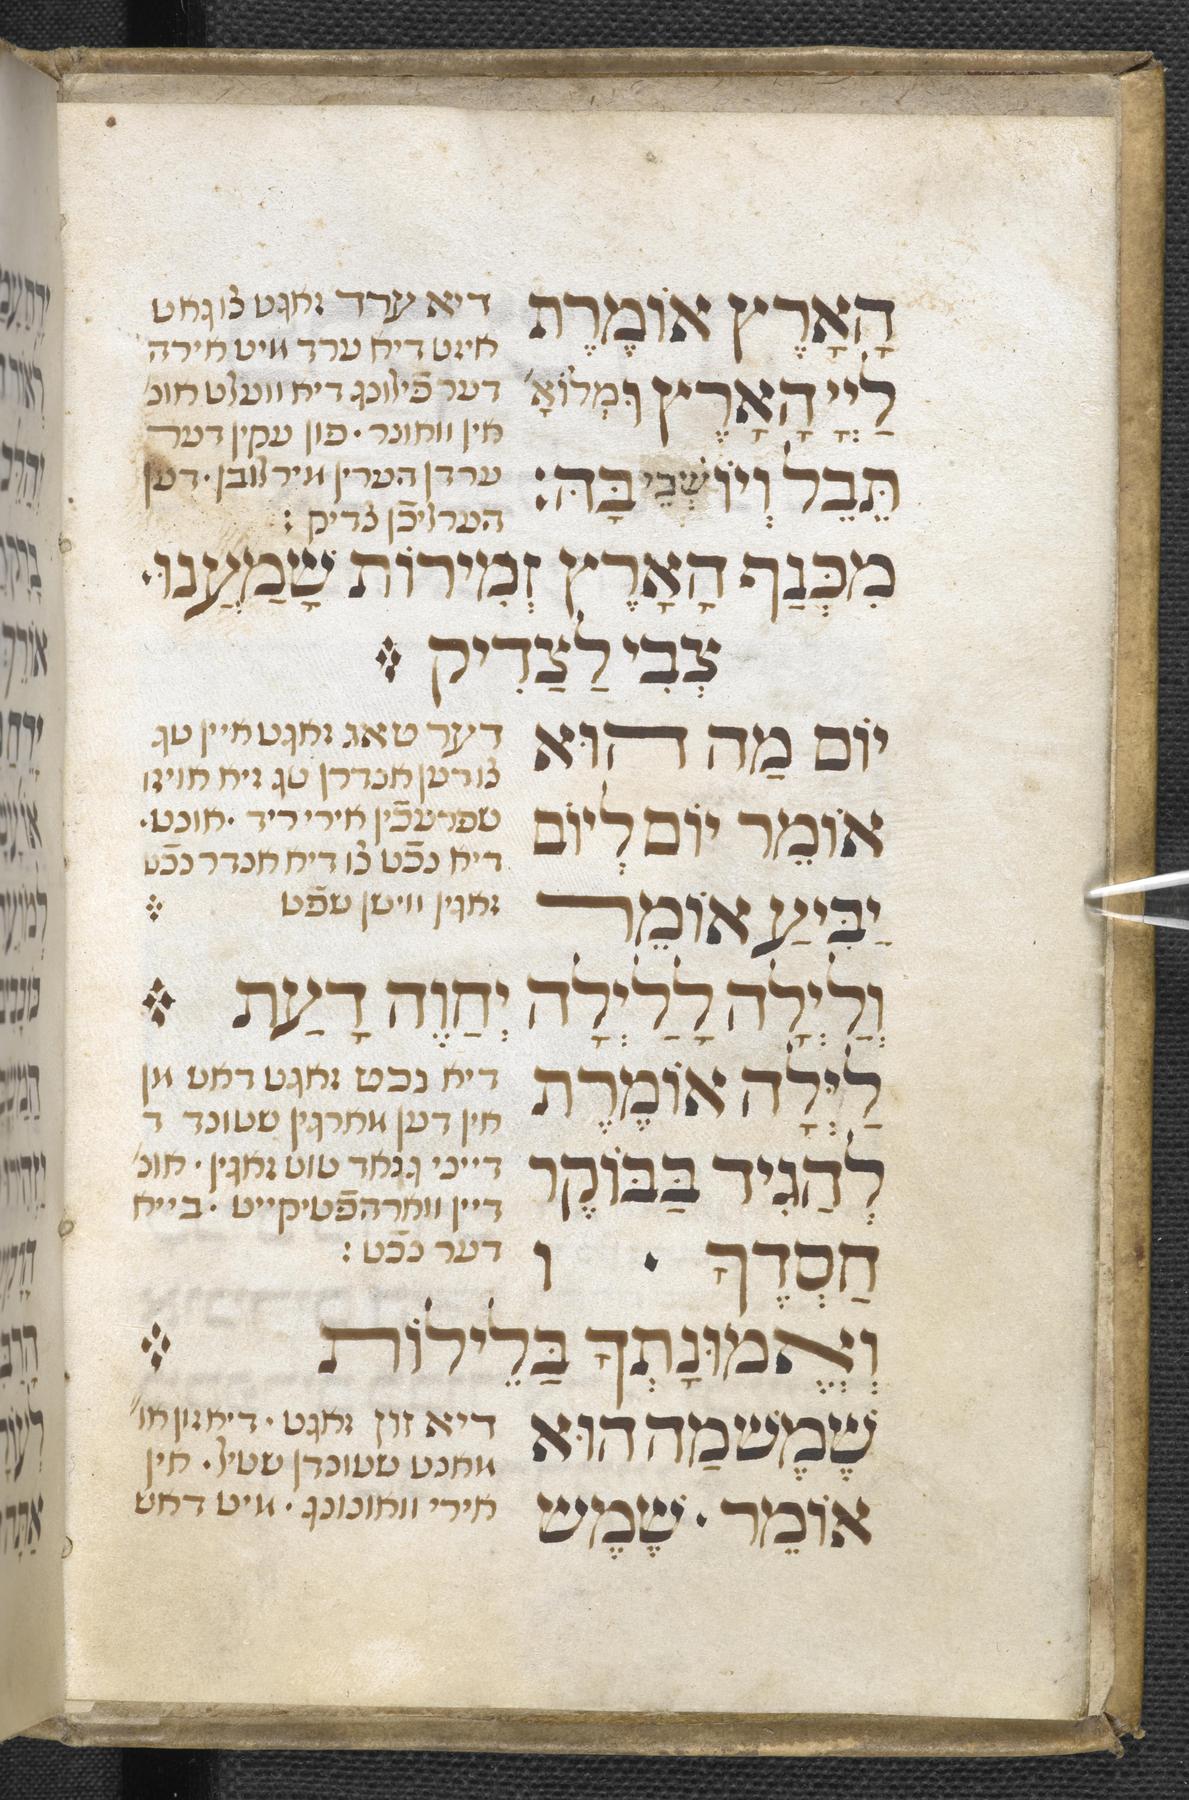 הָאָרֶץ אוֹמֶרֶת
לַיְיָ הָאָרֶץ וּמְלוֹאָ׳
תֵּבֵל וְיוֹשְׁבֵי בָּהּ:
דיא ערד זאגט צו גאט
אינט דיא ערד מיט אירה
דער פֿילונג דיא וועלט אונ׳
אין וואונר · פון עקין דער
ערדן הערין מיר לובן · דען
הערליכֿן צדיק :
מִכְּנַף הָאָרֶץ זְמִירוֹת שָׁמַעֲנוּ·
צְבִי לַצַדִיק
יוֹם מַה הוּא
אוֹמֵר יוֹם לְיוֹם
יַבִּיעַ אוֹמֵר
דער טאג זאגט איין טג
צו דען אנדרן טג זיא אויזו
שפרעכֿין אירי ריד · אונט·
דיא נכֿט צו דיא אנדר נכֿט
זאגין וויטן שפֿט
וְלַיְלָה לַלַיְלָה יְחַוֶה דָעַת
לַיְלָה אוֹמֶרֶת
לְהַגִיד בַּבּוֹקֶר
חַסְדֶךָ · ו
דיא נכט זאגט דאש מן
אין דען מארגין שטונד ד
דייני גנאד טוט זאגין · אונ׳
דיין ווארהפֿטיקייט · בייא
דער נכֿט :
וְאֱמוּנָתְךָ בַּלֵילוֹת
שֶׁמֶשׁ מַה הוּא
אוֹמֵר · שֶׁמֶשׁ
דיא זון זאגט · דיא זון או׳
מאנט שטונדן שטיל · אין
אירי וואונונג · מיט דאש